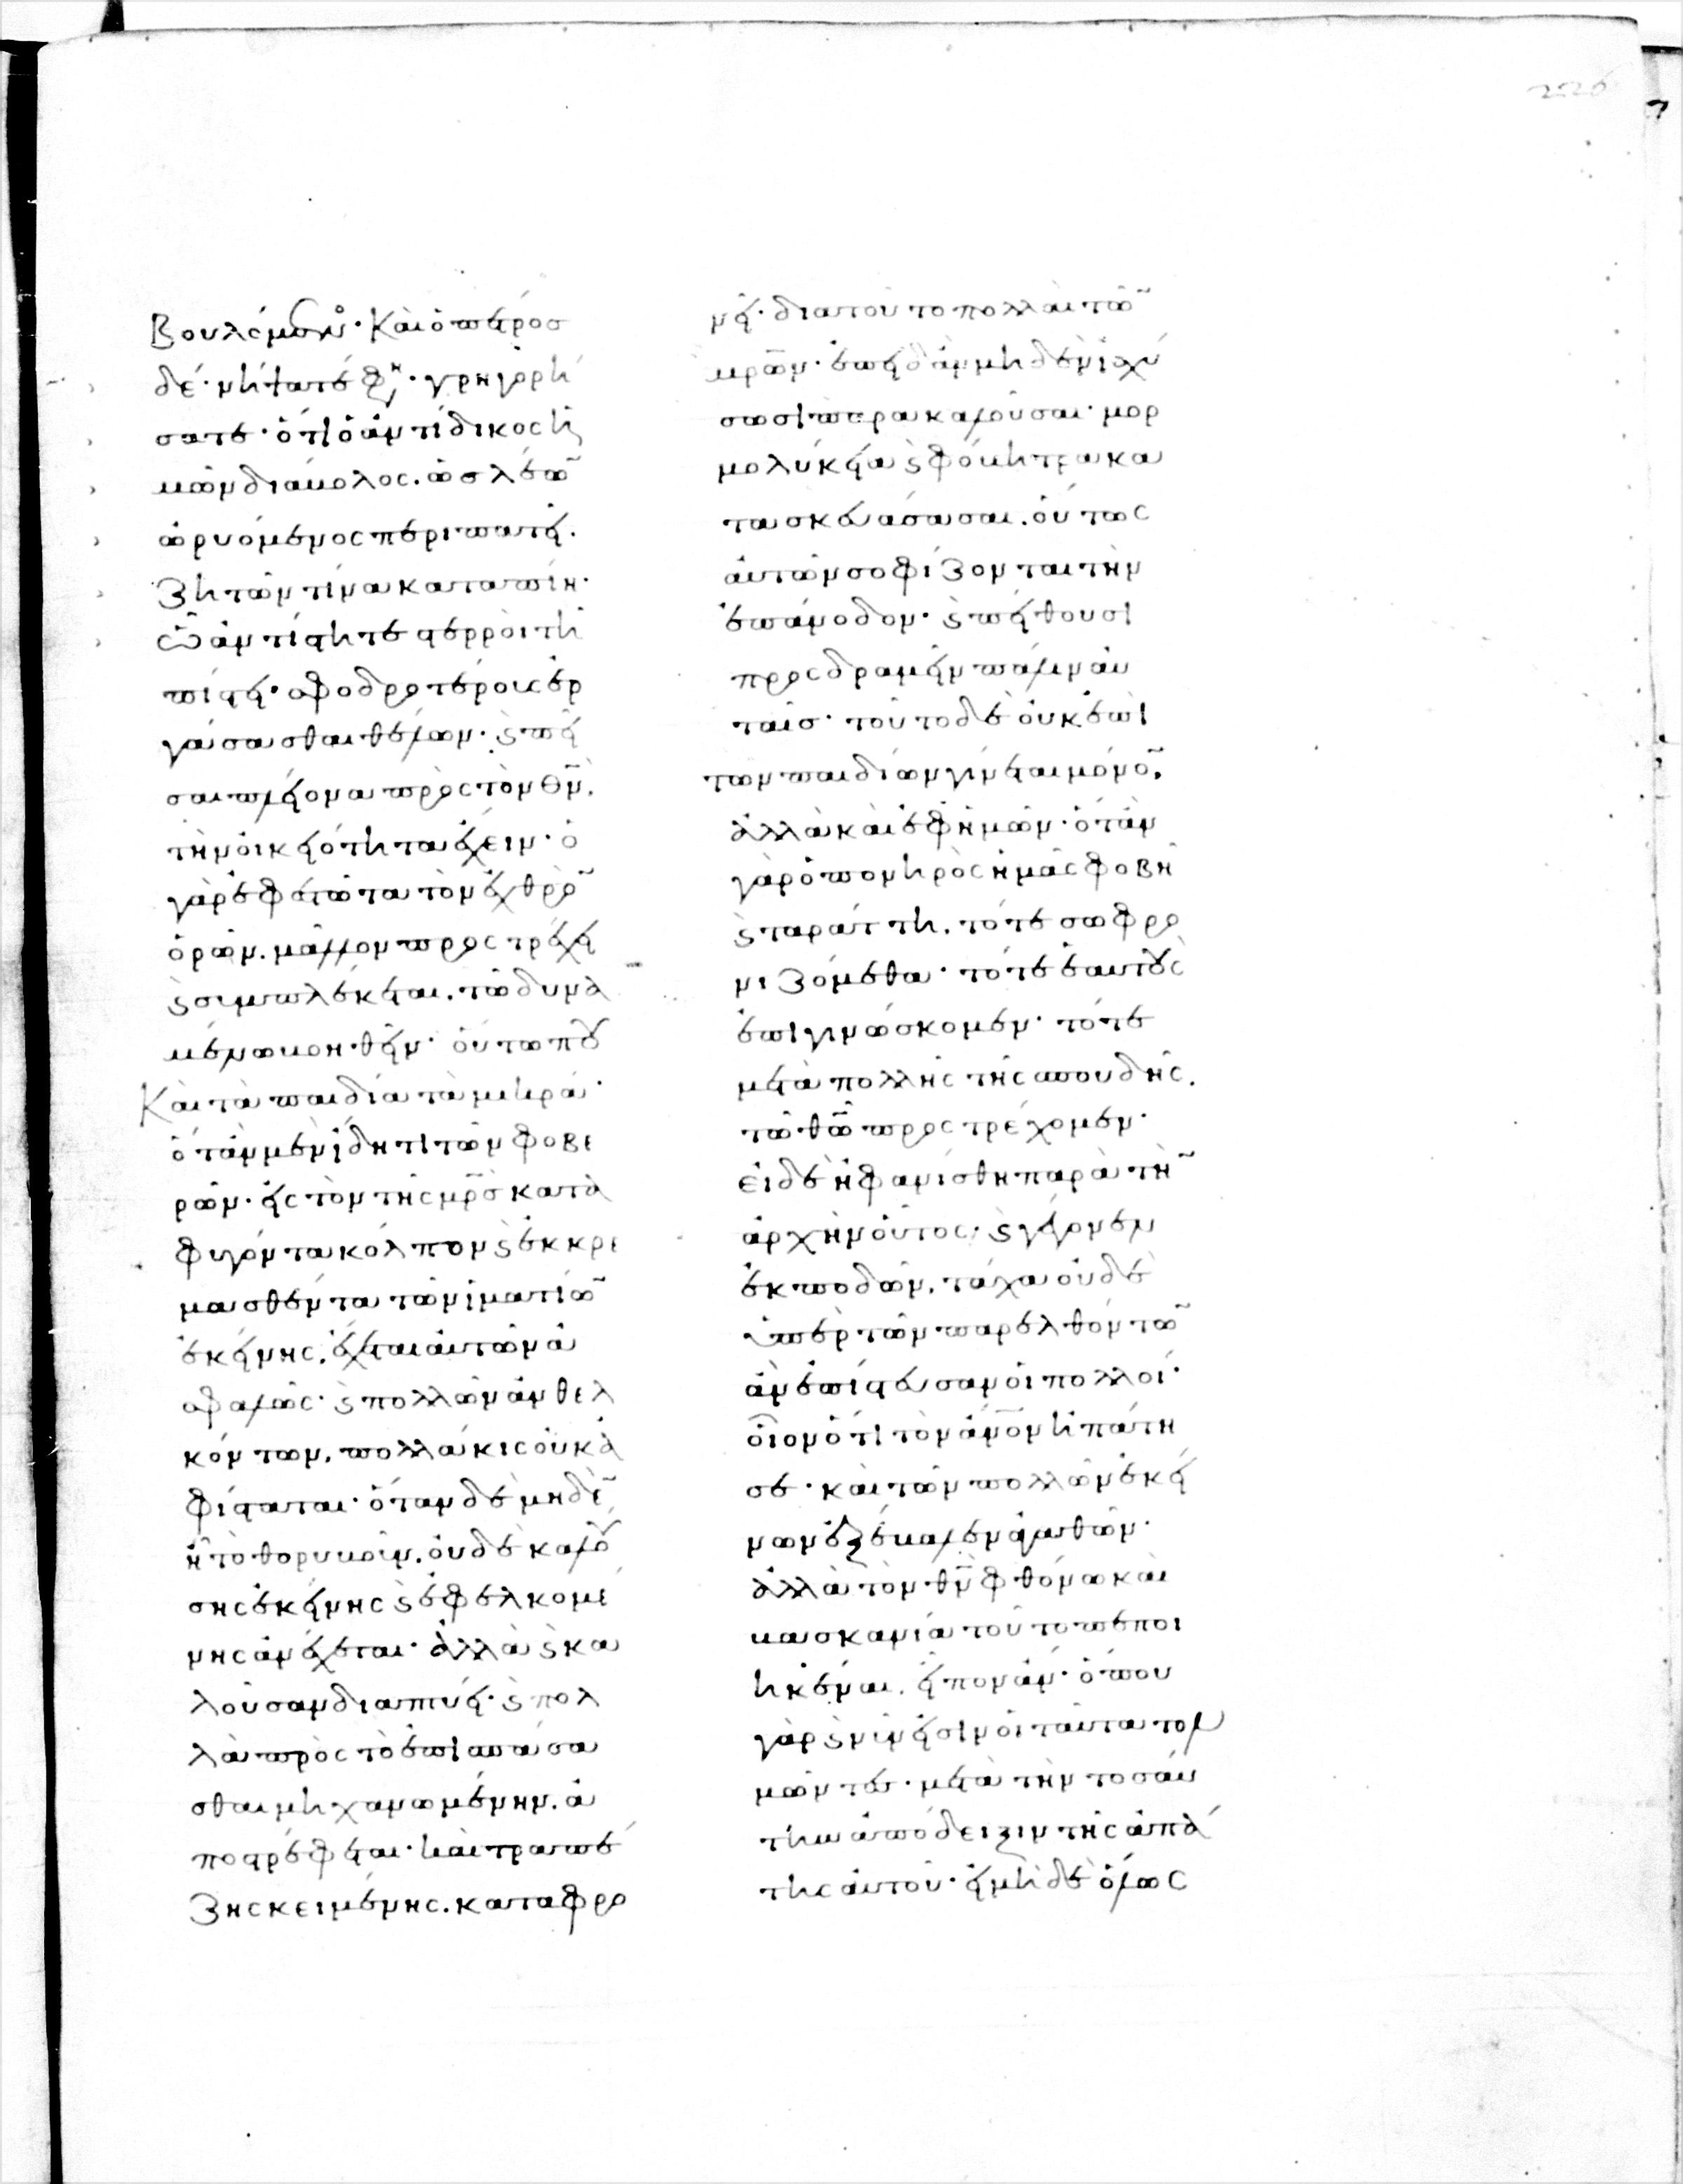 βουλόμενον· Καὶ ὁ πέτρος
δέ· νήψατέ φησιν· γρηγορή
σατε· ὅτι ὁ ἀντίδικος ὑ
μῶν διάβολος. ὡς λέων
ὠρυόμενος περιπατεῖ.
ζητῶν τίνα καταπίῃ·
ᾧ ἀντίστητε στερροὶ τῇ
πίστει· σφοδρότερον ἐρ
γάσασθαι θέλων· καὶ πεῖ
σαι πλείονα πρὸς τὸν θν.
τὴν οἰκειότητα ἔχειν· ὁ
γὰρ ἐφεστῶτα τὸν ἐχθρὸν
ὁρῶν. μᾶλλον προστρέχει
καὶ συμπλέκεται. τῷ δυνα
μένῳ βοηθεῖν· οὕτω που
Καὶ τὰ παιδία τὰ μικρά·
ὅταν μὲν ἴδῃ τι τῶν φοβε
ρῶν· εἰς τὸν τῆς μρς κατα
φυγόντα κόλπον καὶ ἐκκρε
μασθέντα τῶν ἱματίων
ἐκείνης. ἔχεται αὐτῶν ἀ
σφαλῶς· καὶ πολλῶν ἀνθελ
κόντων. πολλάκις οὐκ ἀ
φίσταται· ὅταν δὲ μηδὲν
ᾖ τὸ θορυβοῦν. οὐδὲ καλού
σης ἐκείνης καὶ ἐφελκομέ
νης ἀνέχεται· ἀλλὰ καὶ κα
λοῦσαν διαπτύει· καὶ πολ
λὰ πρὸς τὸ ἐπισπάσα
σθαι μηχανωμένην. ἀ
ποστρέφεται· κἂν τραπέ
ζης κειμένης. καταφρο
νεῖ· διὰ τοῦτο πολλαὶ τῶν
μρων· ἐπειδὰν μηδὲν ἰσχύ
σωσι παρακαλοῦσαι· μορ
μολύκεια καὶ φόβητρα κα
τασκευάσασαι. οὕτως
αὐτῶν σοφίζονται τὴν
ἐπάνοδον· καὶ πείθουσι
προσδραμεῖν πάλιν αὐ
ταῖς· τοῦτο δὲ οὐκ ἐπὶ
τῶν παιδίων γίνεται μόνον.
ἀλλὰ καὶ ἐφ ἡμῶν· ὅταν
γὰρ ὁ πονηρὸς ἡμᾶς φοβῇ
καὶ ταράττη. τότε σωφρο
νιζόμεθα· τότε ἑαυτοὺς
ἐπιγινώσκομεν· τότε
μετὰ πολλῆς τῆς σπουδῆς.
τῷ θῶ προστρέχομεν·
εἰ δὲ ἠφανίσθη παρὰ τὴν
ἀρχὴν οὗτος· καὶ γέγονεν
ἐκποδών. τάχα οὐδὲ
ὑπὲρ τῶν παρελθόντων
ἂν ἐπίστευσαν οἱ πολλοί·
οἷον ὅτι τὸν ανον ἠπάτη
σε· καὶ τῶν πολλῶν ἐκεί
νων ἐξέβαλεν ἀγαθῶν·
ἀλλὰ τὸν θν φθόνῳ καὶ
βασκανία τοῦτο πεποι
ηκέναι. εἶπον ἄν· ὅπου
γὰρ καὶ νῦν εἰσιν οἱ ταῦτα τολ
μῶντες· μετὰ τὴν τοσαύ
την ἀπόδειξιν τῆς ἀπά
της αὐτοῦ· εἰ μὴ δὲ ὅλως